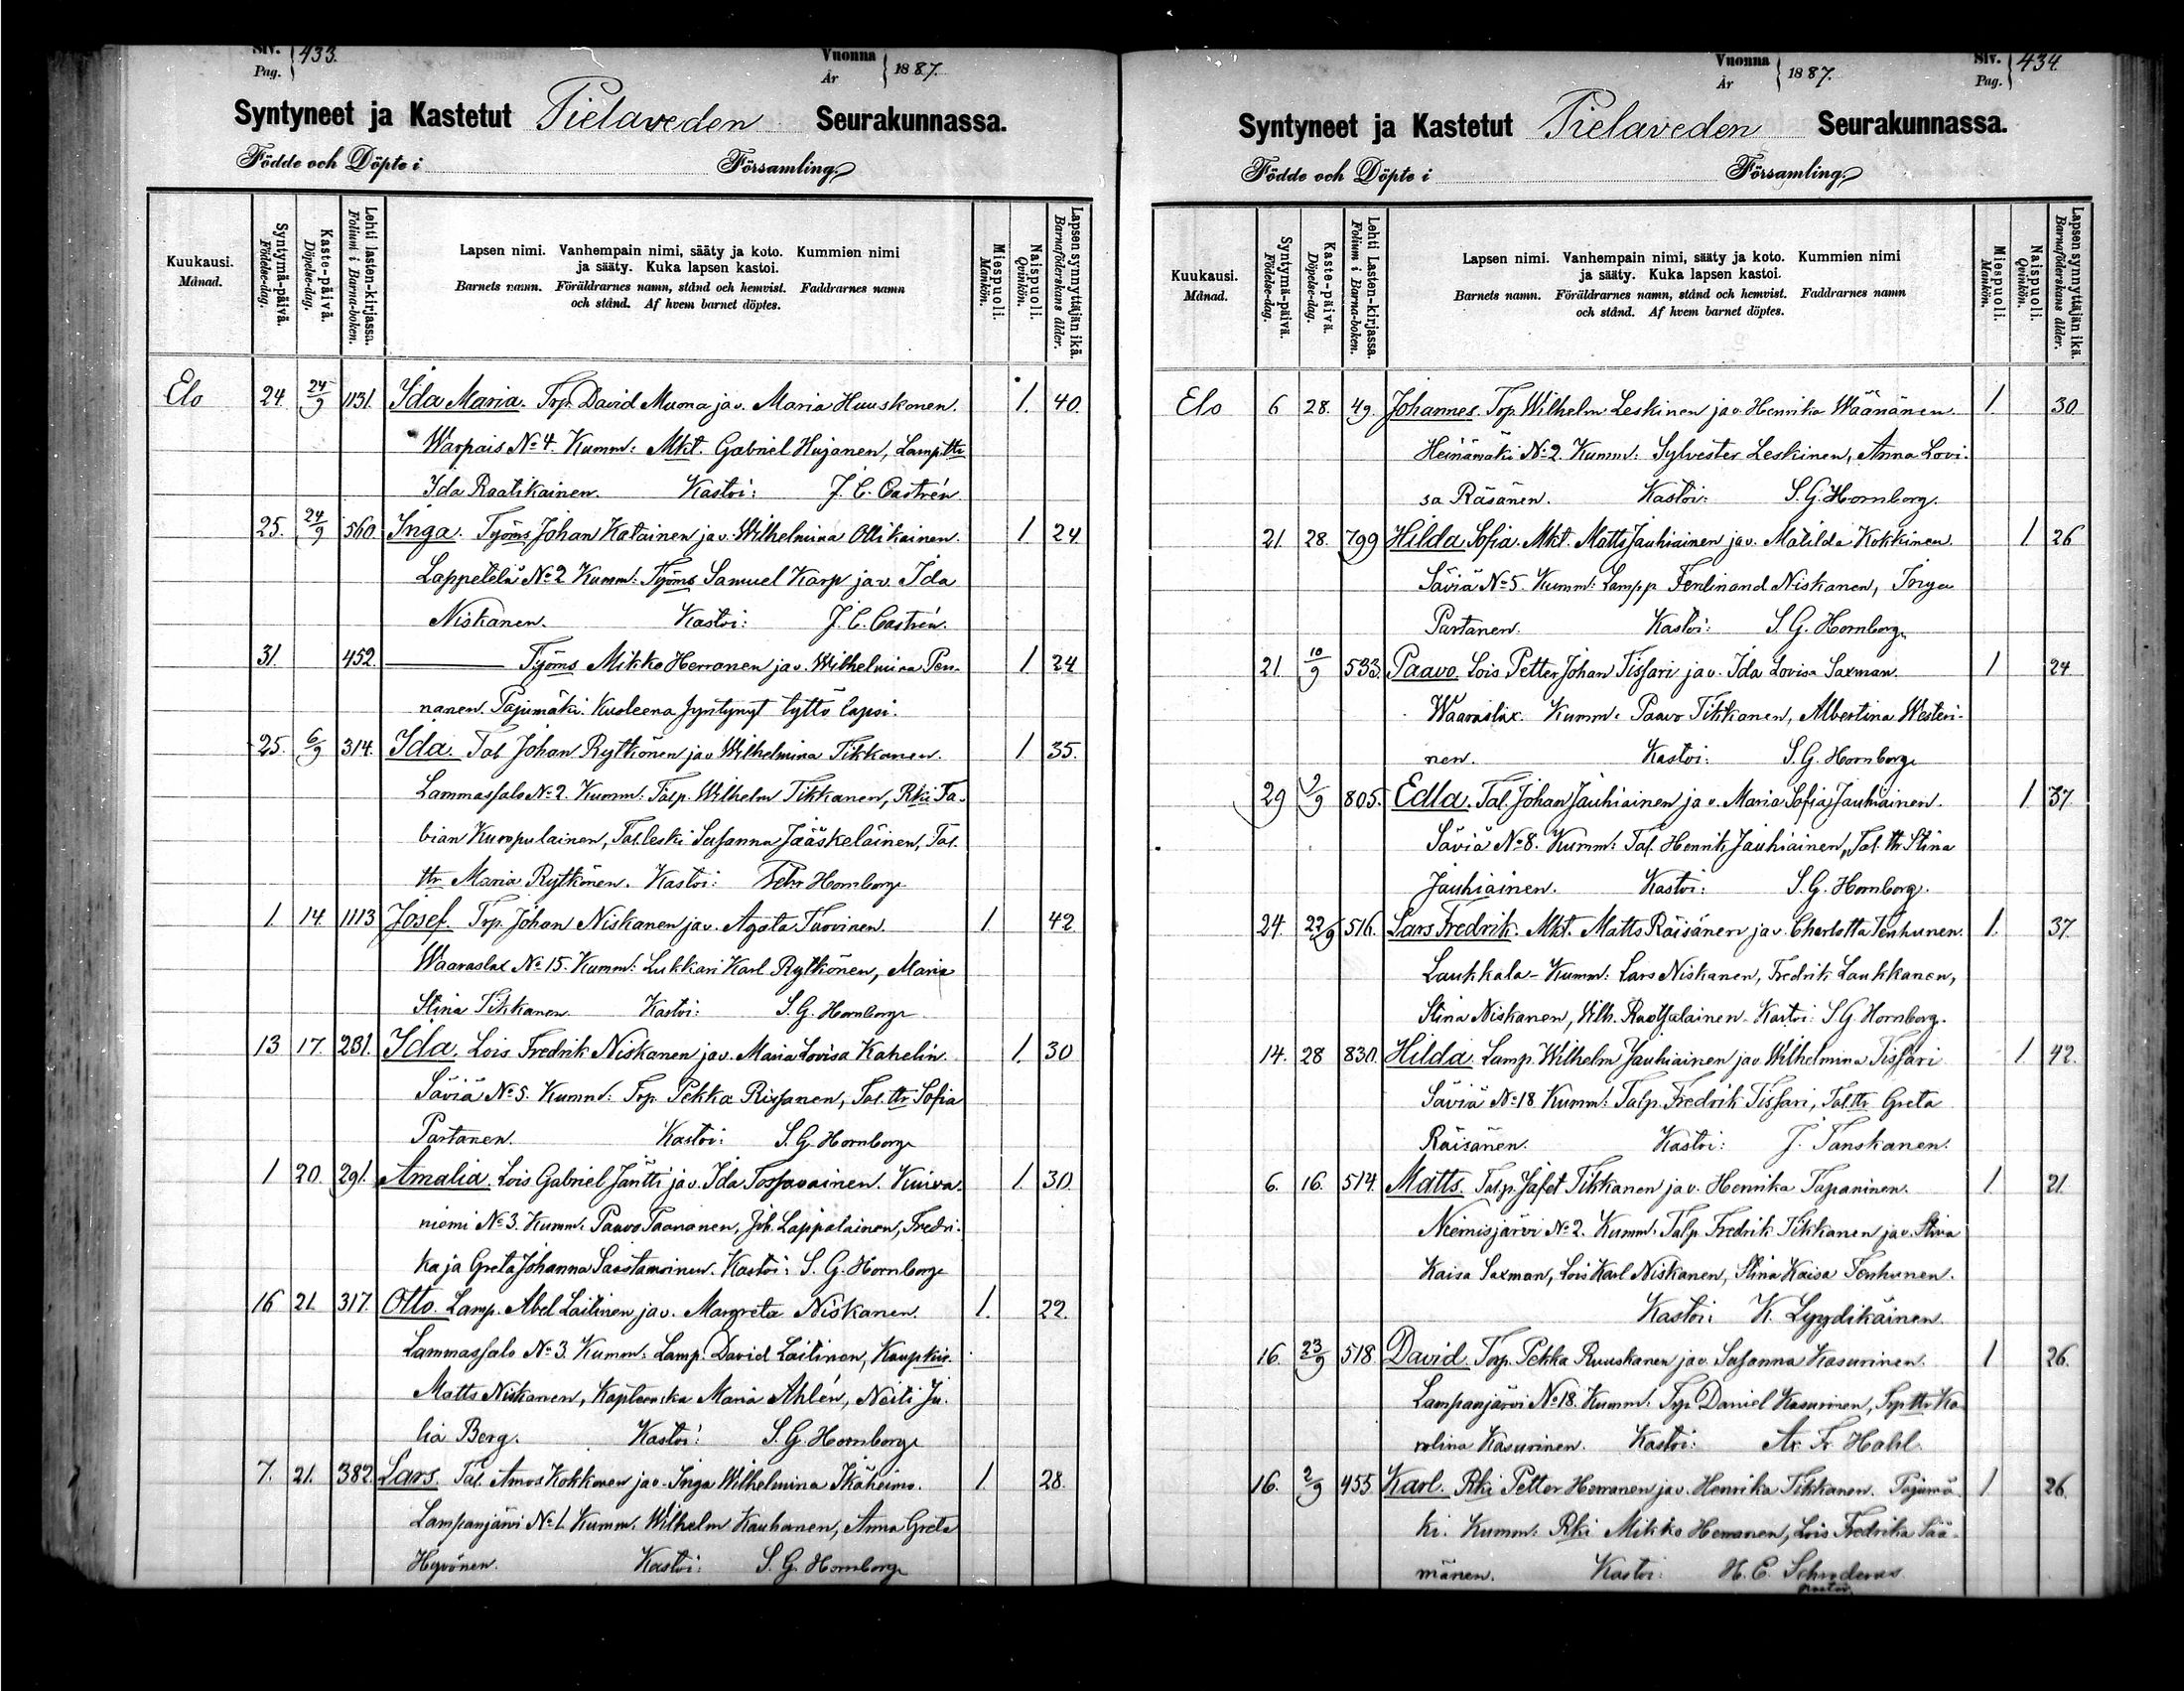 Siv. 433.
Pag.
Vuonna 1887.
År
Syntyneet ja Kastetut Pielaveden Seurakunnassa.
Födde och Döpte i Församling
Kuukausi. Månad.
Syntymä-päivä. Födelse-dag.
Kaste-päivä. Döpelse-dag.
Lehti lasten-kirjassa. Folium i Barna-boken.
Lapsen nimi. Vanhempain nimi, sääty ja koto. Kummien nimi
ja sääty. Kuka lapsen kastoi.
Barnets namn. Föräldrarnes namn, stånd och hemvist. Faddrarnes namn
och stånd. Af hvem barnet döptes.
Miespuoli. Mankön.
Naispuoli. Qvinkön.
Lapsen synnyttäjän ikä. Barnaföderskans ålder.
Elo 24 24/9 1131. Ida Maria. Trp. David Muona ja v. Maria Huuskonen. 1. 40.
Warpais No 4. Kumm: Mkt. Gabriel Hujanen, Lamp. ttr
Ida Raatikainen. Kastoi: J. C. Castrén
25. 24/9 560 Inga. Työms Johan Katainen ja v. Wilhelmina Ollikainen. 1. 24
Lappetelä No 2 Kumm: Työms Samuel Karp ja v. Ida
Niskanen. Kastoi: J. C. Castrén.
31. 452. Työms Mikko Herranen ja v. Wilhelmina Pen-
nanen. Pajumäki. Kuoleena syntynyt tyttö lapsi. 1 24
25. 6/9 314. Ida. Tal Johan Rytkönen ja v Wilhelmina Tikkanen. 1 35.
Lammassalo No 2. Kumm: Talp. Wilhelm Tikkanen, Rki Fa-
bian Kumpulainen, Tal. leski Susanna Jääskeläinen, Tal.
ttr Maria Rytkönen. Kastoi: Hornborg
1. 14. 1113 Josef. Trp. Johan Niskanen ja v. Agata Tarvinen. 1. 42
Waaraslax No 15. Kumm: Lukkari Karl Rytkönen, Maria
Stina Tikkanen Kastoi: S. G. Hornborg
13 17. 281. Ida. Lois Fredrik Niskanen ja v. Maria Lovisa Kahelin. 1. 30
Säviä No 5. Kumm: Trp. Pekka Rissanen, Tal. ttr Sofia
Partanen. Kastoi: S. G. Hornborg
1 20. 291. Amalia. Lois Gabriel Jäntti ja v. Ida Tossavainen. Kuiva- 1. 30.
niemi No 3. Kumm: Paavo Paananen, Joh. Lappalainen, Fredri-
ka ja Greta Johanna Saastamoinen. Kastoi: S. G. Hornborg
16 21. 317. Otto. Lamp. Abel Laitinen ja v. Margreta Niskanen. 1. 22.
Lammassalo No 3. Kumm: Lamp. David Laitinen,
Matts Niskanen, Maria Ahlén, Neiti Ju-
lia Berg. Kastoi: S. G. Hornborg
7. 21. 382. Lars. Tal. Amos Kokkonen ja v. Inga Wilhelmina Ikäheimo. 1. 28.
Lampaanjärvi No 1. Kumm. Wilhelm Kauhanen, Anna Greta
Hyvönen. Kastoi: S. G. Hornborg
Vuonna 1887.
År
Siv. 434.
Pag.
Syntyneet ja Kastetut Pielaveden Seurakunnassa.
Födde och Döpte i Församling
Kuukausi. Månad.
Syntymä-päivä. Födelse-dag.
Kaste-päivä. Döpelse-dag.
Lehti Lasten-kirjassa. Folium i Barna-boken.
Lapsen nimi. Vanhempain nimi, sääty ja koto. Kummien nimi
ja sääty. Kuka lapsen kastoi.
Barnets namn. Föräldrarnes namn, stånd och hemvist. Faddrarnes namn
och stånd. Af hvem barnet döptes.
Miespuoli. Mankön.
Naispuoli. Qvinkön.
Lapsen synnyttäjän ikä. Barnaföderskans ålder.
Elo 6 28. 49. Johannes. Trp Wilhelm Leskinen ja v. Henrika Wäänänen. 1. 30
Heinämäki No 2. Kumm: Sylvester Leskinen, Anna Lovi-
sa Räsänen. Kastoi: S. G. Hornborg.
21. 28. 799 Hilda Sofia. Mkt. Matts Jauhiainen ja v. Matilda Kokkinen. 1. 26
Säviä No 5. Kumm: Lampp Ferdinand Niskanen, Inga
Partanen. Kastoi: S. G. Hornborg.
21. 10/9 533. Paavo. Lois Petter Johan Tissari ja v. Ida Lovisa Saxman. 1 24
Waaraslax. Kumm: Paavo Tikkanen, Albertina Westeri-
nen. Kastoi: S. G. Hornborg
29 9/9 805. Edla. Tal. Johan Jauhiainen ja v. Maria Sofia Jauhiainen. 1. 37.
Säviä No 8. Kumm: Tal. Henrik Jauhiainen, Tal. ttr Stina
Jauhiainen. Kastoi: S. G. Hornborg.
24. 22/9 516. Lars Fredrik. Mkt. Matts Räisänen ja v. Charlotta Tenhunen. 1. 37.
Laukkala - Kumm: Lars Niskanen, Fredrik Laukkanen,
Stina Niskanen, Wilh. Ruotsalainen. Kastoi: S G Hornborg.
14. 28 830. Hilda. Lamp. Wilhelm Jauhiainen ja v Wilhelmina Tissari 1. 42.
Säviä No 18. Kumm: Talp. Fredrik Tissari, Tal. ttr Greta
Räisänen. Kastoi: J. Tanskanen.
6. 16. 514. Matts. Talp. Jafet Tikkanen ja v. Henrika Tapaninen. 1. 21.
Niemisjärvi No 2. Kumm: Talp Fredrik Tikkanen ja v. Stina
Kaisa Saxman, Lois Karl Niskanen, Stina Kaisa Tenhunen.
Kastoi: K. Lyydikäinen
16. 23/9 518. David. Trp. Pekka Ruuskanen ja v. Susanna Kasurinen. 1 26.
Lampaanjärvi No 18. Kumm: Trp Daniel Kasurinen, Trp ttr Ka-
rolina Kasurinen. Kastoi: Ar. Fr. Hahl.
16. 2/9 455 Karl. Rki Petter Herranen ja v. Henrika Tikkanen. Pajumä- 1. 26.
ki. Kumm: Rki Mikko Herranen, Lois Fredrika Sää-
mänen. Kastoi: H. E. Schroderus
pastor.